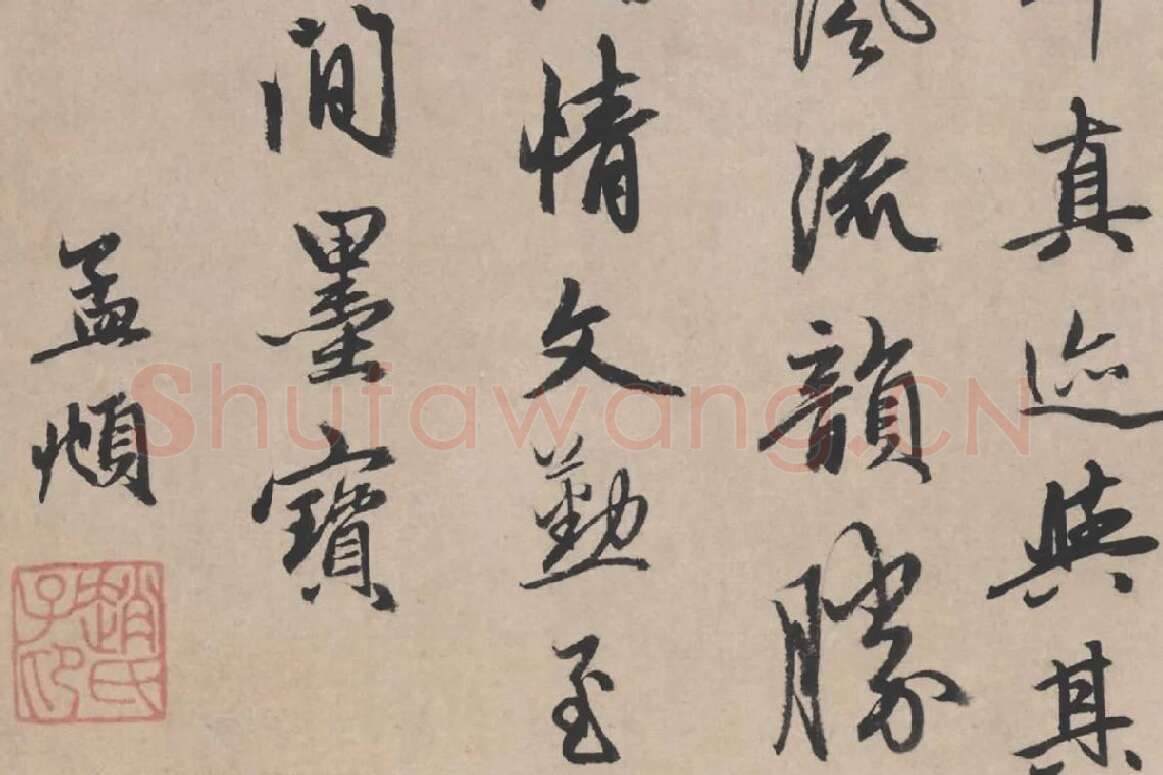 真迹與其
風流韻勝
情文勤至
間墨寶
孟頫
趙氏子印
Shufawang.CN